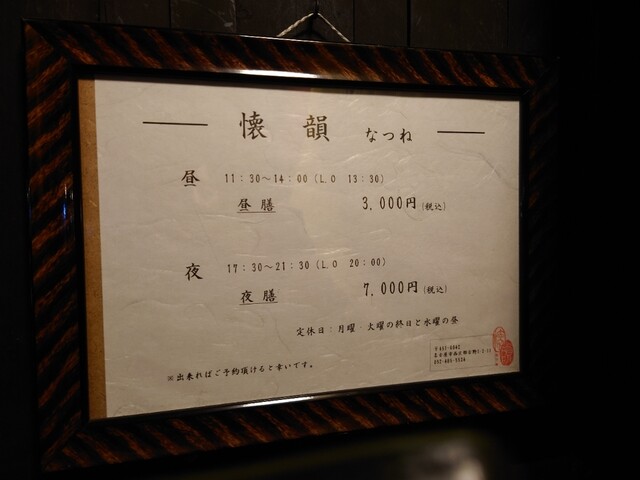 懐韻 なつね
昼 11:30～14:00(L.O 13:30)
昼膳 3,000円(税込)
夜 17:30～21:30(L.O 20:00)
夜膳 7,000円(税込)
定休日:月曜・火曜の終日と水曜の昼
※出来ればご予約頂けると幸いです。